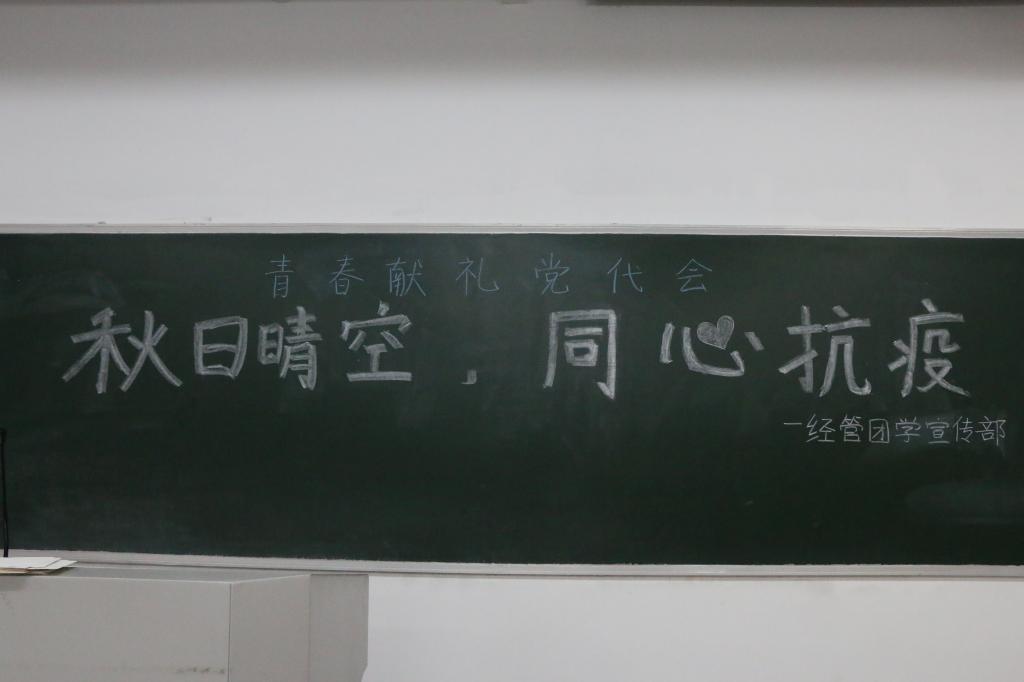 青春献礼党代会
秋日晴空，同心抗疫
一经管团学宣传部